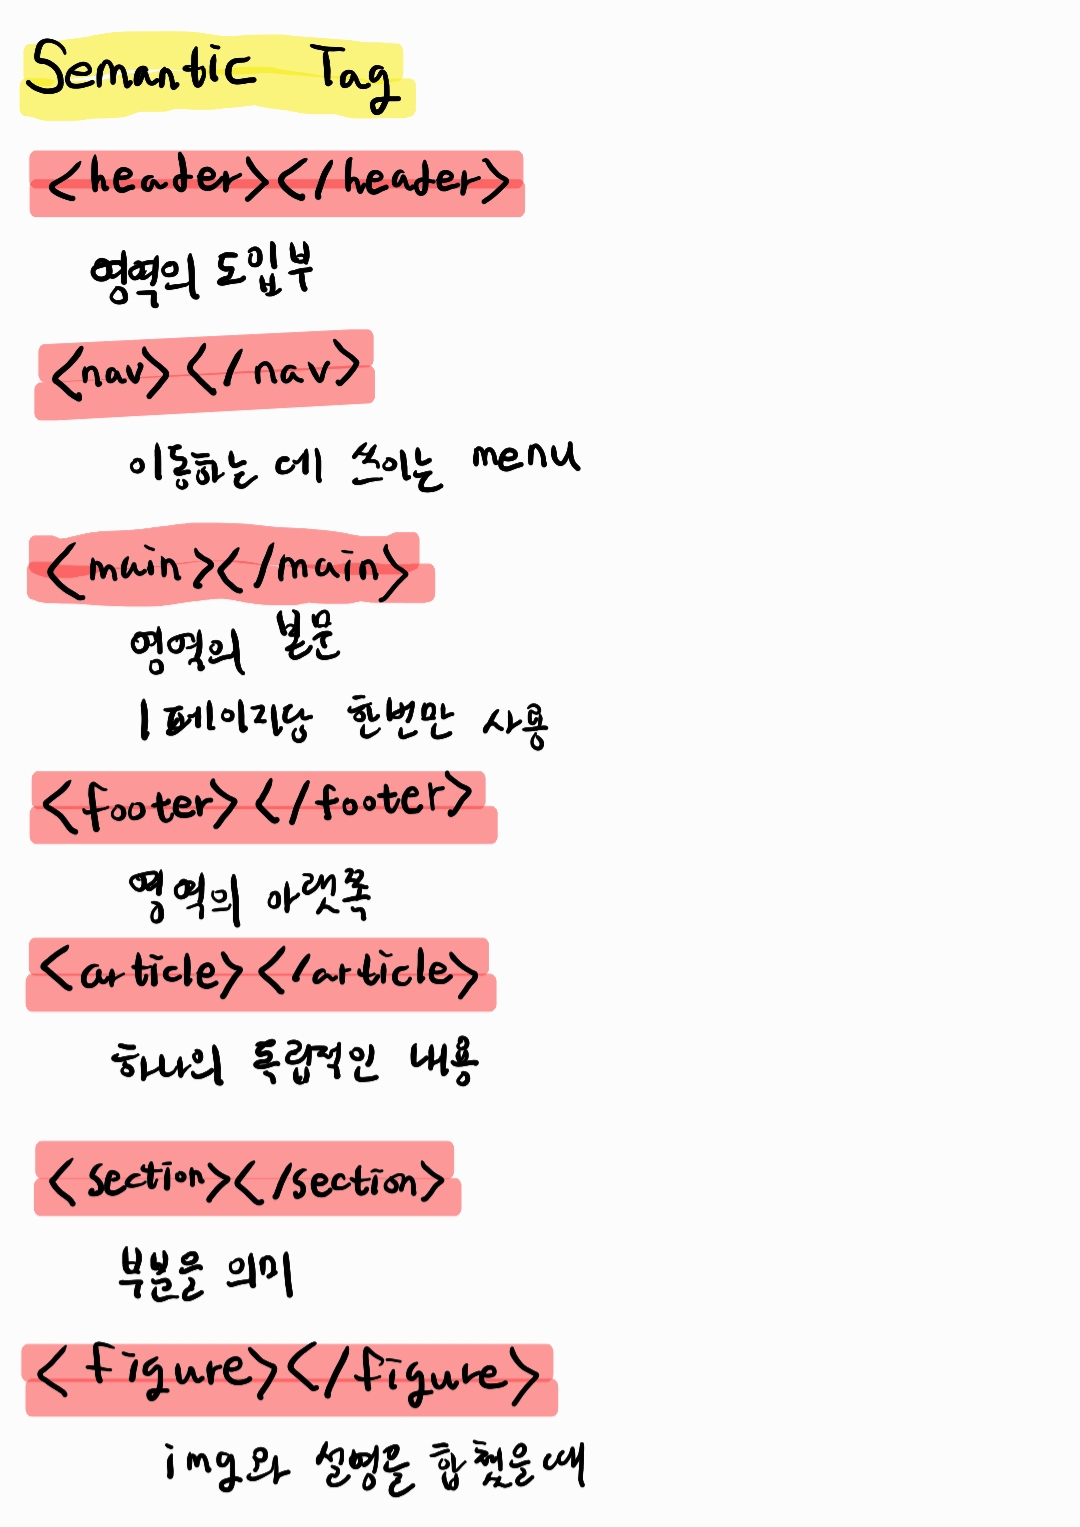 Semantic Tag
<header></header>
영역의 도입부
<nav></nav>
이동하는 데 쓰이는 menu
<main></main>
영역의 본문
1페이지당 한번만 사용
<footer></footer>
영역의 아랫쪽
<article></article>
하나의 독립적인 내용
<section></section>
부분을 의미
<figure></figure>
img와 설명을 합쳤을때